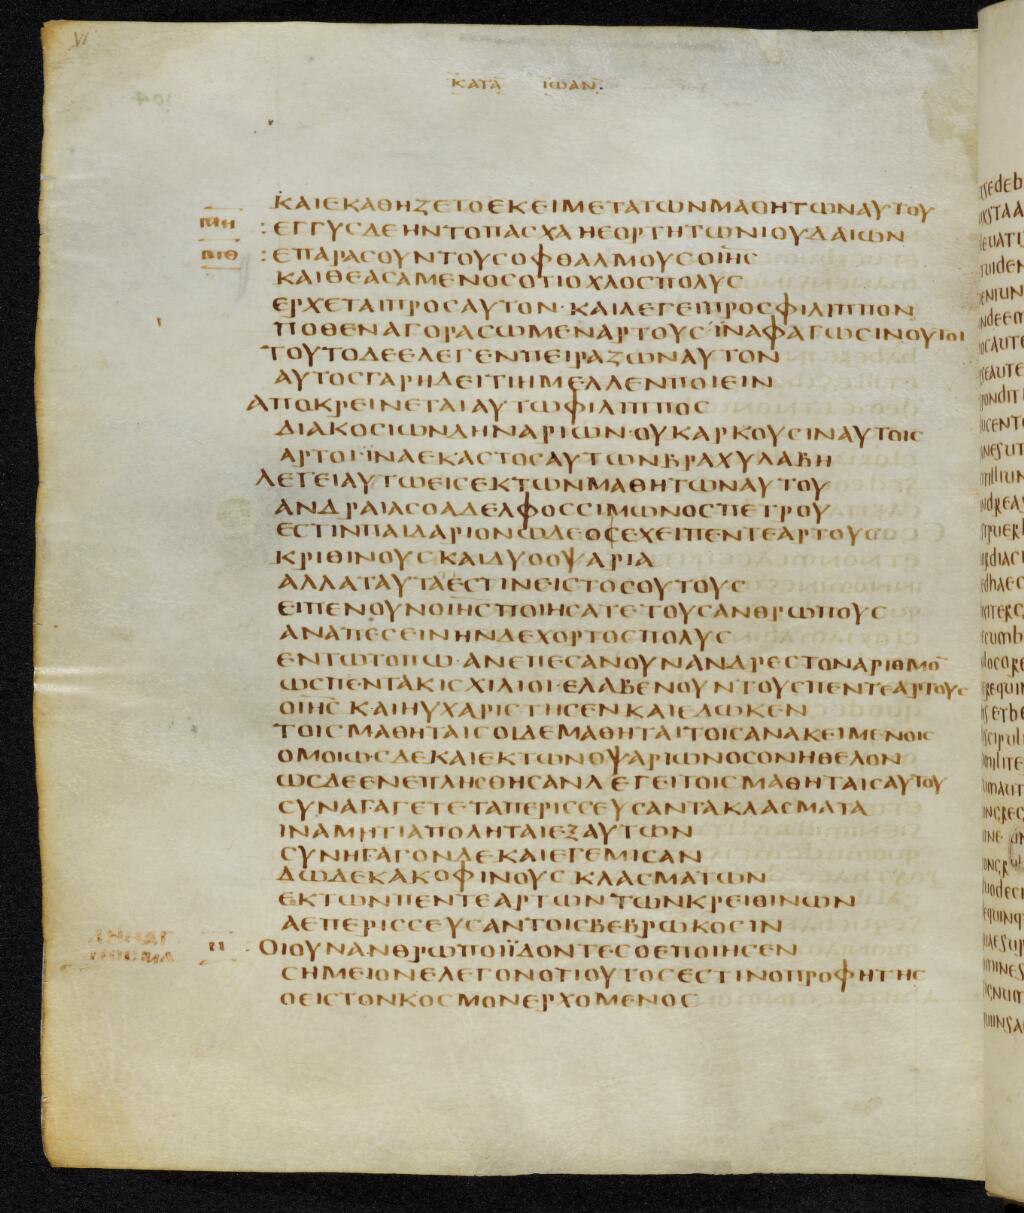 ΚΑΤΑ ΙΩΑΝ.
ΚΑΙΕΚΑΘΗΖΕΤΟΕΚΕΙΜΕΤΑΤΩΝΜΑΘΗΤΩΝΑΥΤΟΥ
ΜΗ :ΕΓΓΥΣΔΕΗΝΤΟΠΑΣΧΑΗΕΟΡΤΗΤΩΝΙΟΥΔΑΙΩΝ
ΜΘ :ΕΠΑΡΑΣΟΥΝΤΟΥΣΟΦΘΑΛΜΟΥΣΟΙΗΣ
ΚΑΙΘΕΑΣΑΜΕΝΟΣΟΤΙΟΧΛΟΣΠΟΛΥΣ
ΕΡΧΕΤΑΙΠΡΟΣΑΥΤΟΝ·ΚΑΙΛΕΓΕΙΠΡΟΣΦΙΛΙΠΠΟΝ
ΠΟΘΕΝΑΓΟΡΑΣΩΜΕΝΑΡΤΟΥΣΪΝΑΦΑΓΩΣΙΝΟΥΤΟΙ
ΤΟΥΤΟΔΕΕΛΕΓΕΝΠΕΙΡΑΖΩΝΑΥΤΟΝ
ΑΥΤΟΣΓΑΡΗΔΕΙΤΙΗΜΕΛΛΕΝΠΟΙΕΙΝ
ΑΠΟΚΡΕΙΝΕΤΑΙΑΥΤΩΦΙΛΙΠΠΟΣ
ΔΙΑΚΟΣΙΩΝΔΗΝΑΡΙΩΝ·ΟΥΚΑΡΚΟΥΣΙΝΑΥΤΟΙΣ
ΑΡΤΟΙ·ΪΝΑΕΚΑΣΤΟΣΑΥΤΩΝΒΡΑΧΥΛΑΒΗ
ΛΕΓΕΙΑΥΤΩΕΙΣΕΚΤΩΝΜΑΘΗΤΩΝΑΥΤΟΥ
ΑΝΔΡΑΙΑΣΟΑΔΕΛΦΟΣΣΙΜΩΝΟΣΠΕΤΡΟΥ
ΕΣΤΙΝΠΑΙΔΑΡΙΟΝΩΔΕΟΣΕΧΕΙΠΕΝΤΕΑΡΤΟΥΣ
ΚΡΙΘΙΝΟΥΣΚΑΙΔΥΟΟΨΑΡΙΑ
ΑΛΛΑΤΑΥΤΑΕΣΤΙΝΕΙΣΤΟΣΟΥΤΟΥΣ
ΕΙΠΕΝΟΥΝΟΙΗΣΠΟΙΗΣΑΤΕ·ΤΟΥΣΑΝΘΡΩΠΟΥΣ
ΑΝΑΠΕΣΕΙΝΗΝΔΕΧΟΡΤΟΣΠΟΛΥΣ
ΕΝΤΩΤΟΠΩ·ΑΝΕΠΕΣΑΝΟΥΝΑΝΔΡΕΣΤΟΝΑΡΙΘΜΟ̅
ΩΣΠΕΝΤΑΚΙΣΧΙΛΙΟΙ·ΕΛΑΒΕΝΟΥΝΤΟΥΣΠΕΝΤΕΑΡΤΟΥΣ
ΟΙΗΣ ΚΑΙΗΥΧΑΡΙΣΤΗΣΕΝΚΑΙΕΔΩΚΕΝ
ΤΟΙΣΜΑΘΗΤΑΙΣΟΙΔΕΜΑΘΗΤΑΙΤΟΙΣΑΝΑΚΕΙΜΕΝΟΙΣ
ΟΜΟΙΩΣΔΕΚΑΙΕΚΤΩΝΟΨΑΡΙΩΝΟΣΟΝΗΘΕΛΟΝ
ΩΣΔΕΕΝΕΠΛΗΣΘΗΣΑΝΛΕΓΕΙΤΟΙΣΜΑΘΗΤΑΙΣΑΥΤΟΥ
ΣΥΝΑΓΑΓΕΤΕ·ΤΑΠΕΡΙΣΣΕΥΣΑΝΤΑΚΛΑΣΜΑΤΑ
ΙΝΑΜΗΤΙΑΠΟΛΗΤΑΙΕΞΑΥΤΩΝ
ΣΥΝΗΓΑΓΟΝΔΕΚΑΙΕΓΕΜΙΣΑΝ
ΔΩΔΕΚΑΚΟΦΙΝΟΥΣΚΛΑΣΜΑΤΩΝ
ΕΚΤΩΝΠΕΝΤΕΑΡΤΩΝΤΩΝΚΡΕΙΘΙΝΩΝ
ΑΕΠΕΡΙΣΣΕΥΣΑΝΤΟΙΣΒΕΒΡΩΚΟΣΙΝ
Ν ΟΙΟΥΝΑΝΘΡΩΠΟΙΪΔΟΝΤΕΣΟΕΠΟΙΗΣΕΝ
ΣΗΜΕΙΟΝΕΛΕΓΟΝΟΤΙΟΥΤΟΣΕΣΤΙΝΟΠΡΟΦΗΤΗΣ
ΟΕΙΣΤΟΝΚΟΣΜΟΝΕΡΧΟΜΕΝΟΣ